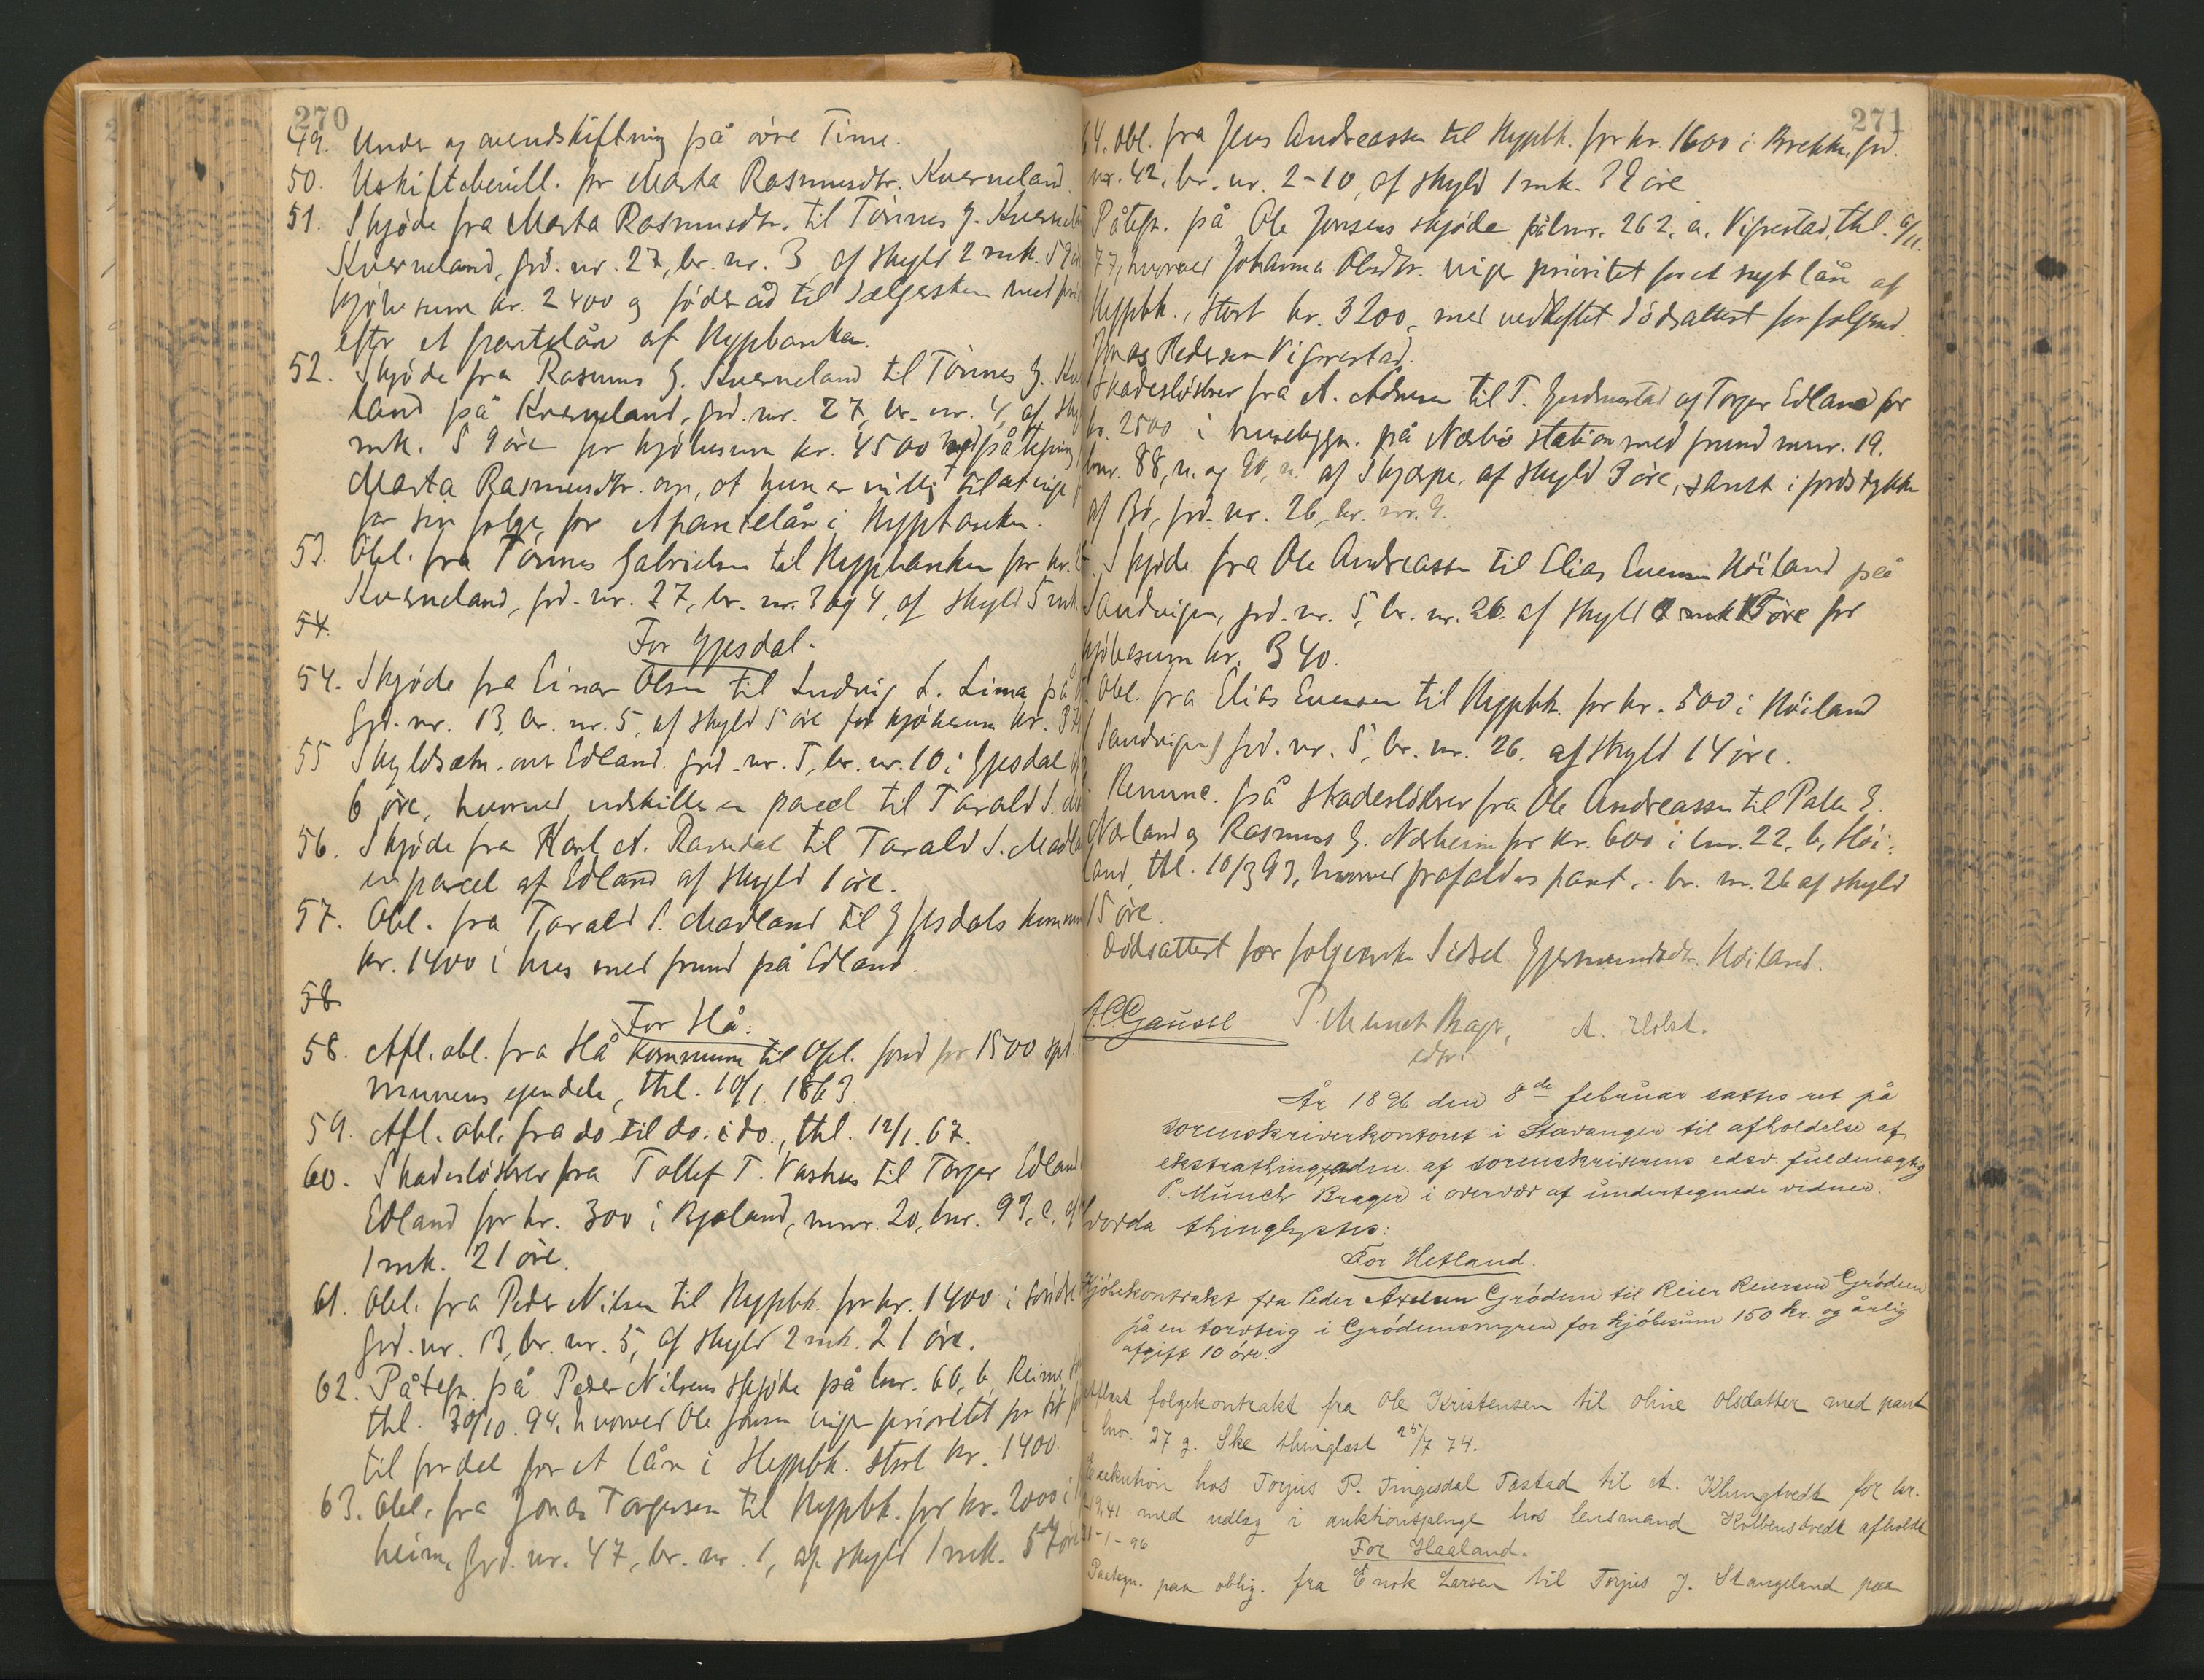 270
49. Under og avendskiftning på övre Time.
50. Uskiftebevill. for Marta Rasmusdtr. Kverneland.
51. Skjøde fra Marta Rasmusdtr. til Tönnes G. Kvernela
Kverneland, grd. nr. 27, br. nr. 3 af skyld 2 mk. 59
kjöbesum kr. 2400 og föderåd til sælgersken med pri
efter et pantelån af Hypbanken.
52. Skjøde fra Rasmus G. Kverneland til Tönnes G. Kv
land på Kverneland, grd. nr. 27, br. nr. 4, af sky
mk. 59 öre for kjöbesum kr. 4500 med påtegning
Marta Rasmusdtr. om, at hun er villig til at vige
for sin folge for et pantelån i Hypbanken.
53. Obl. fra Tönnes Gabrielsen til Hypbanken for kr.
Kverneland, grd. nr. 27, br. nr. 3 og 4, af skyld 5 mk
54.
For Gjesdal.
54. Skjøde fra Einar Olsen til Ludvig L. Lima på
grd. nr. 13, br. nr. 5, af skyld 5 öre for kjöbesum kr. 37
55 Skyldsætn. over Edland grd. nr. 5, br. nr. 10 i Gjesdal af
6 öre, hvorved udskilles en parcel til Tarald S.
56. Skjøde fra Karl A. Ravndal til Tarald S. Madla
en parcel af Edland af skyld 1 öre.
57. Obl. fra Tarald S. Madland til Gjesdals kommun
kr. 1400 i hus med grund på Edland.
58
For Hå:
58. Afl. obl. fra Hå kommune til Opl. fond for 1500 spd.
munens ejendele, thl. 10/1. 1863.
59. Afl. obl. fra do til do. i do., thl. 12/1. 67.
60. Skadeslösbrev fra Tollef T. Vashus til Torger Edland
Edland for kr. 300 i Bjoland, mnr. 20, lnr. 93, c, af
1 mk. 21 öre.
61. Obl. fra Peder Nilsen til Hypbk. for kr. 1400 i söndre
grd. nr. 13, br. nr. 5, af skyld 2 mk. 21 öre.
62. Påtegn. på Peder Nilsens skjöde på lnr. 66, b, Reime,
thl. 30/10. 94, hvorved Ole Jonsen viger prioritet for sit
til fordel for et lån i Hypbk. stort kr. 1400.
63. Obl. fra Jonas Torgersen til Hypbk. for kr. 2000 i
heim, grd. nr. 47, br. nr. 1, af skyld 1 mk. 57 öre
271
64. Obl. fra Jens Andreassen til Hypbk. for kr. 1600 i Brekke, grd.
nr. 42, br. nr. 2-10, af skyld 1 mk. 32 öre
Påtegn. på Ole Jonsens skjøde på lnr. 262, a, Vigrestad, thl. 6/11.
77, hvorved Johanna Olsdtr. viger prioritet for et nyt lån af
Hypbk., stort kr. 3200, med vedheftet dödsattest for folgemd.
Jonas Pedersen Vigrestad.
Skadeslösbrev fra A. Adnesen til T. Gudmestad og Torger Edland for
kr. 2500 i husebygn. på Nærbö station med grund mnr. 19,
lnr. 88, n. og 90, n. af Skjærpe, af skyld 3 öre, samt i jordstykke
af Bö, grd. nr. 26, br. nr. 9.
Skjøde fra Ole Andreassen til Elias Evensen Höiland på
Sandvigen, grd. nr. 5, br. nr. 26 af skyld 0 mk 15 öre for
kjöbesum kr. 340.
Obl. fra Elias Evensen til Hypbk. for kr. 500 i Höiland
(Sandvigen) grd. nr. 5, br. nr. 26. af skyld 14 öre.
Renunc. på skadeslösbrev fra Ole Andreassen til Palle E.
Nærland og Rasmus G. Nærheim for kr. 600 i lnr. 22, b, Höi-
land, thl. 10/3 93, hvorved frafaldes pant i br. nr. 26 af skyld
15 öre.
Dödsattest for folgemske Sidsel Gjermundsdtr. Höiland.
A.C. Gaussel P. Munch Brager, A. Holst.
edsv.
År 1896 den 8de februar sattes ret på
sorenskriverkontoret i Stavanger til afholdelse af
ekstrathing, adm. af sorenskriverens edsv. fuldmægtig
P. Munch Brager i overvær af undertegnede vidner.
hvorda thinglystes:
For Hetland.
Kjöbekontrakt fra Peder Axelsen Grödem til Reier Reiersen Grödem
på en torvteig i Grödemsmyren for kjöbesum 150 kr. og årlig
afgift 10 öre.
Aflæst folgekontrakt fra Ole Kristensen til Oline Olsdatter med pant
i lnr. 27 g. Ske thinglæst 25/7 74.
Exekution hos Torjus P. Tingesdal Tastad til A. Klungtvedt for kr.
219,41 med udlæg i auktionspenge hos lensmand Kolbenstvedt afholdt
31-1-96
For Haaland.
Paategn. paa oblig. fra Enok Larsen til Torjus J. Stangeland paa